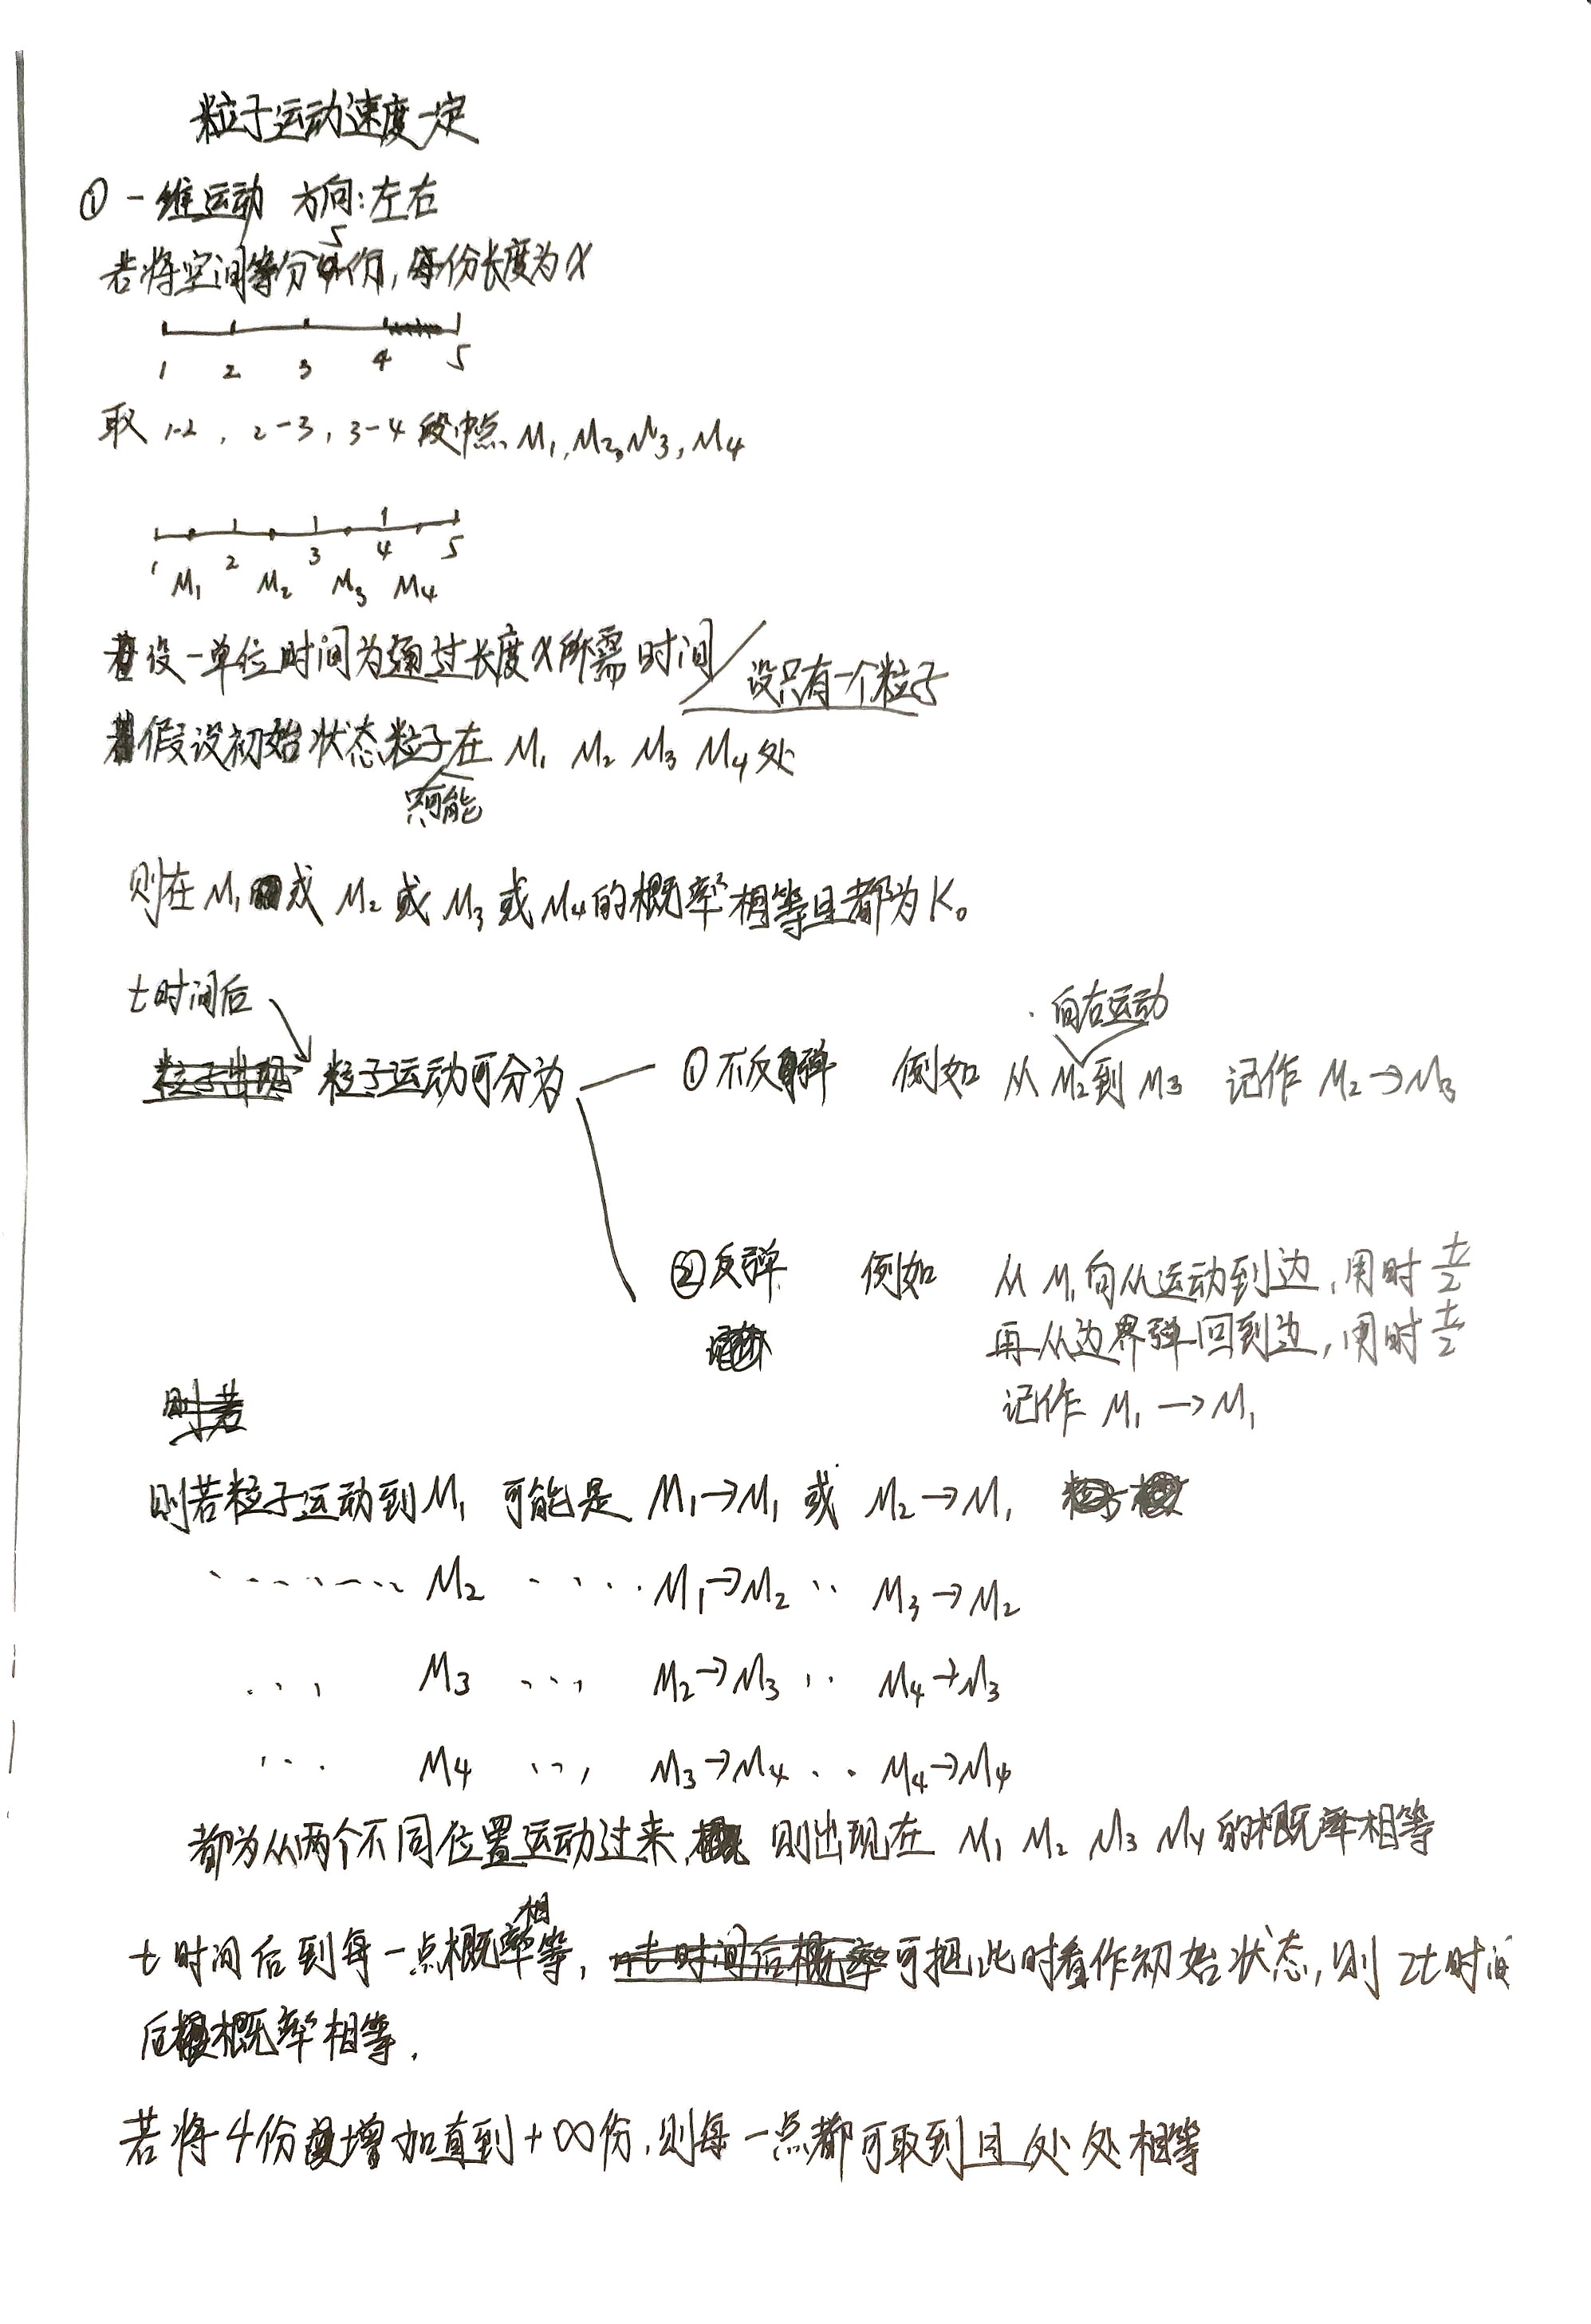 粒子运动速度一定
① 一维运动 方向:左右
5
若将空间等分 份,每份长度为x
1 2 3 4 5
取 1-2 , 2-3 , 3-4 段中点 M₁,M₂,M₃,M₄
1 2 3 4 5
M₁ M₂ M₃ M₄
设一单位时间为通过长度x所需时间/设只有一个粒子
假设初始状态粒子在 M₁ M₂ M₃ M₄处
只可能
则在M₁或 M₂ 或 M₃ 或M₄的概率相等且都为K。
t时间后
向右运动
粒子运动可分为 ①不反弹 例如 从M₂到M₃ 记作 M₂→M₃
②反弹 例如 从M₁向从运动到边,用时 t/2
再从边界弹回到边,用时 t/2
记作 M₁→M₁
则若
则若粒子运动到M₁ 可能是 M₁→M₁ 或 M₂→M₁
........ M₂ ..... M₁→M₂ .. M₃→M₂
... M₃ ... M₂→M₃ .. M₄→M₃
... M₄ ... M₃→M₄ .. M₄→M₄
都为从两个不同位置运动过来, 则出现在 M₁ M₂ M₃ M₄的概率相等
相
t时间后到每一点概率等, 可把此时看作初始状态,则 2t时间
后概率相等.
若将4份增加直到+∞份,则每一点都可取到且处处相等